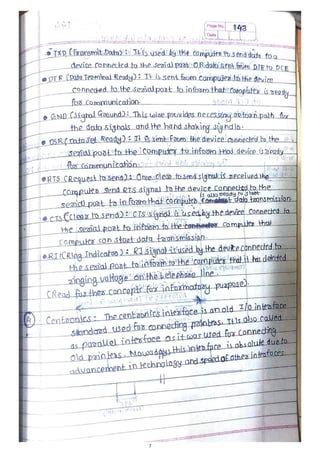 Page No. 143
Date
• TXD (Transmit Data) : It is used by the computer to send data to a
device connected to the serial port OR data sent from DTE to DCE
• DTR (Data Terminal Ready) : It is sent from computer to the device
connected to the serial port to inform that computer is ready
for communication.
• GND (Signal Ground) : This wire provides necessary return path for
the data signals and the hand shaking signals.
• DSR (Data Set Ready) : It is sent from the device connected to the
serial port to the computer to inform that device is ready
for communication.
• RTS (Request to Send) : Once clear to send signal is received the
computer send RTS signal to the device connected to the
is also ready to start
serial port to inform that computer data transmission
• CTS (Clear to Send) : CTS signal is used by the device connected to
the serial port to inform to the computer that
computer can start data transmission
• RI (Ring Indicator) : RI signal is used by the device connected to
the serial port to inform to the computer that it has detected
ringing voltage on the telephone line.
(Read further concepts for informatory purpose)
Centronics : The centronics interface is an old I/O interface
standard used for connecting printers. It is also called
as parallel interface as it was used for connecting
old printers. Nowadays this interface is absolute due to
advancement in technology and speed of other interfaces.